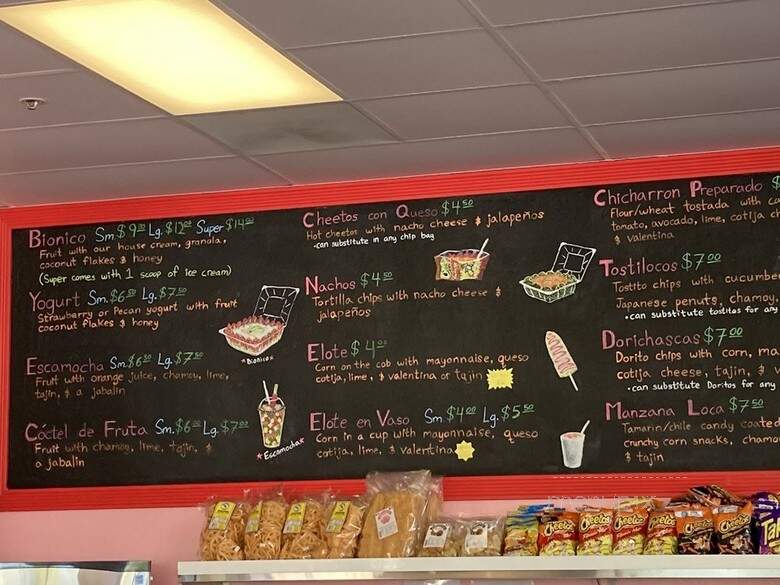 Bionico Sm. $9.00 Lg. $12.00 Super $14.00
Fruit with our house cream, granola,
coconut flakes & honey
(Super comes with 1 scoop of ice cream)
Yogurt Sm. $6.50 Lg. $7.50
Strawberry or Pecan yogurt with fruit
coconut flakes & honey
Escamocha Sm. $6.50 Lg. $7.50
Fruit with orange juice, chamoy, lime,
tajin, & a jabalin
Cóctel de Fruta Sm. $6.00 Lg. $7.00
Fruit with chamoy, lime, tajin, &
a jabalin
*Bionico*
*Escamocha*
Cheetos con Queso $4.50
Hot cheetos with nacho cheese & jalapeños
•can substitute in any chip bag
Nachos $4.50
Tortilla chips with nacho cheese &
jalapeños
Elote $4.00
Corn on the cob with mayonnaise, queso
cotija, lime, & valentina or tajin
Elote en Vaso Sm. $4.00 Lg. $5.50
Corn in a cup with mayonnaise, queso
cotija, lime, & valentina
Chicharron Preparado $
Flour/wheat tostada with
tomato, avocado, lime, cotija
& valentina
Tostilocos $7.00
Tostito chips with cucumbe
Japanese penuts, chamoy,
•can substitute tostitos for any
Dorichascas $7.00
Dorito chips with corn, ma
cotija cheese, tajin, & v
•can substitute Doritos for any
Manzana Loca $7.50
Tamarin/chile candy coated
crunchy corn snacks, chamo
& tajin
Cheetos
Cheetos
Cheetos
Cheetos
Cheetos
Cheetos
Tak